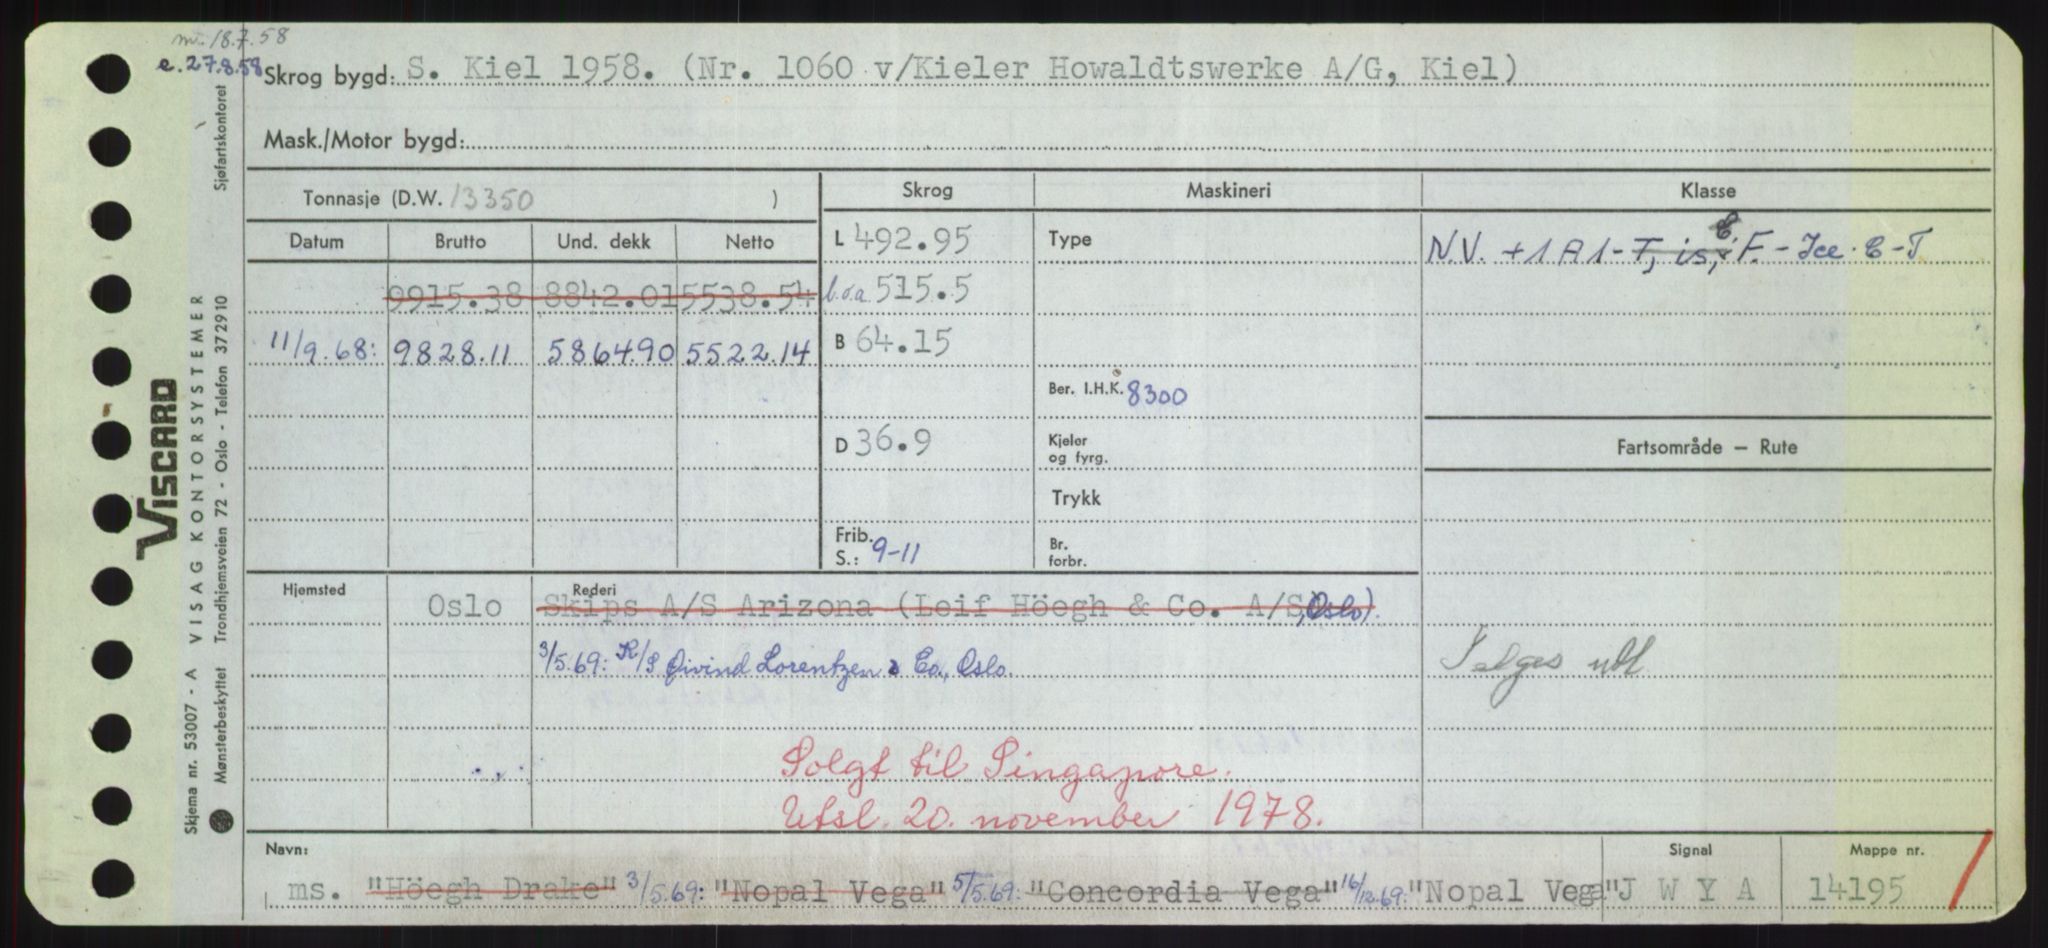 m. 18.7.58
e. 27.8.58
Skrog bygd: S. Kiel 1958. (Nr. 1060 v/Kieler Howaldtswerke A/G, Kiel)
Mask./Motor bygd:
Tonnasje (D.W. 13350 )
Skrog
Maskineri
Klasse
Datum
Brutto
Und. dekk
Netto
9915.38 8842.01 5538.54
11/9.68: 9828.11 5864.90 5522.14
L 492.95
l.o.a 515.5
B 64.15
D 36.9
Frib.
S.: 9-11
Type
Ber. I.H.K. 8300
Kjeler
og fyrg.
Trykk
Br.
forbr.
N.V. +1A1-T, is, F. - Ice. C - T
Fartsområde — Rute
Selges udt
Hjemsted
Oslo
Rederi
Skips A/S Arizona (Leif Höegh & Co. A/S, Oslo).
3/5.69: K/S Øivind Lorentzen & Co., Oslo.
Solgt til Singapore.
Utsl. 20. november 1978.
Navn:
Signal
Mappe nr.
ms. "Höegh Drake" 3/5.69: "Nopal Vega" 5/5.69: "Concordia Vega" 16/12.69: "Nopal Vega" J W Y A 14195
VISCARD
Skjema nr. 53007 - A VISAG KONTORSYSTEMER
Mønsterbeskyttet Trondhjemsveien 72 - Oslo - Telefon 372910 Sjøfartskontoret